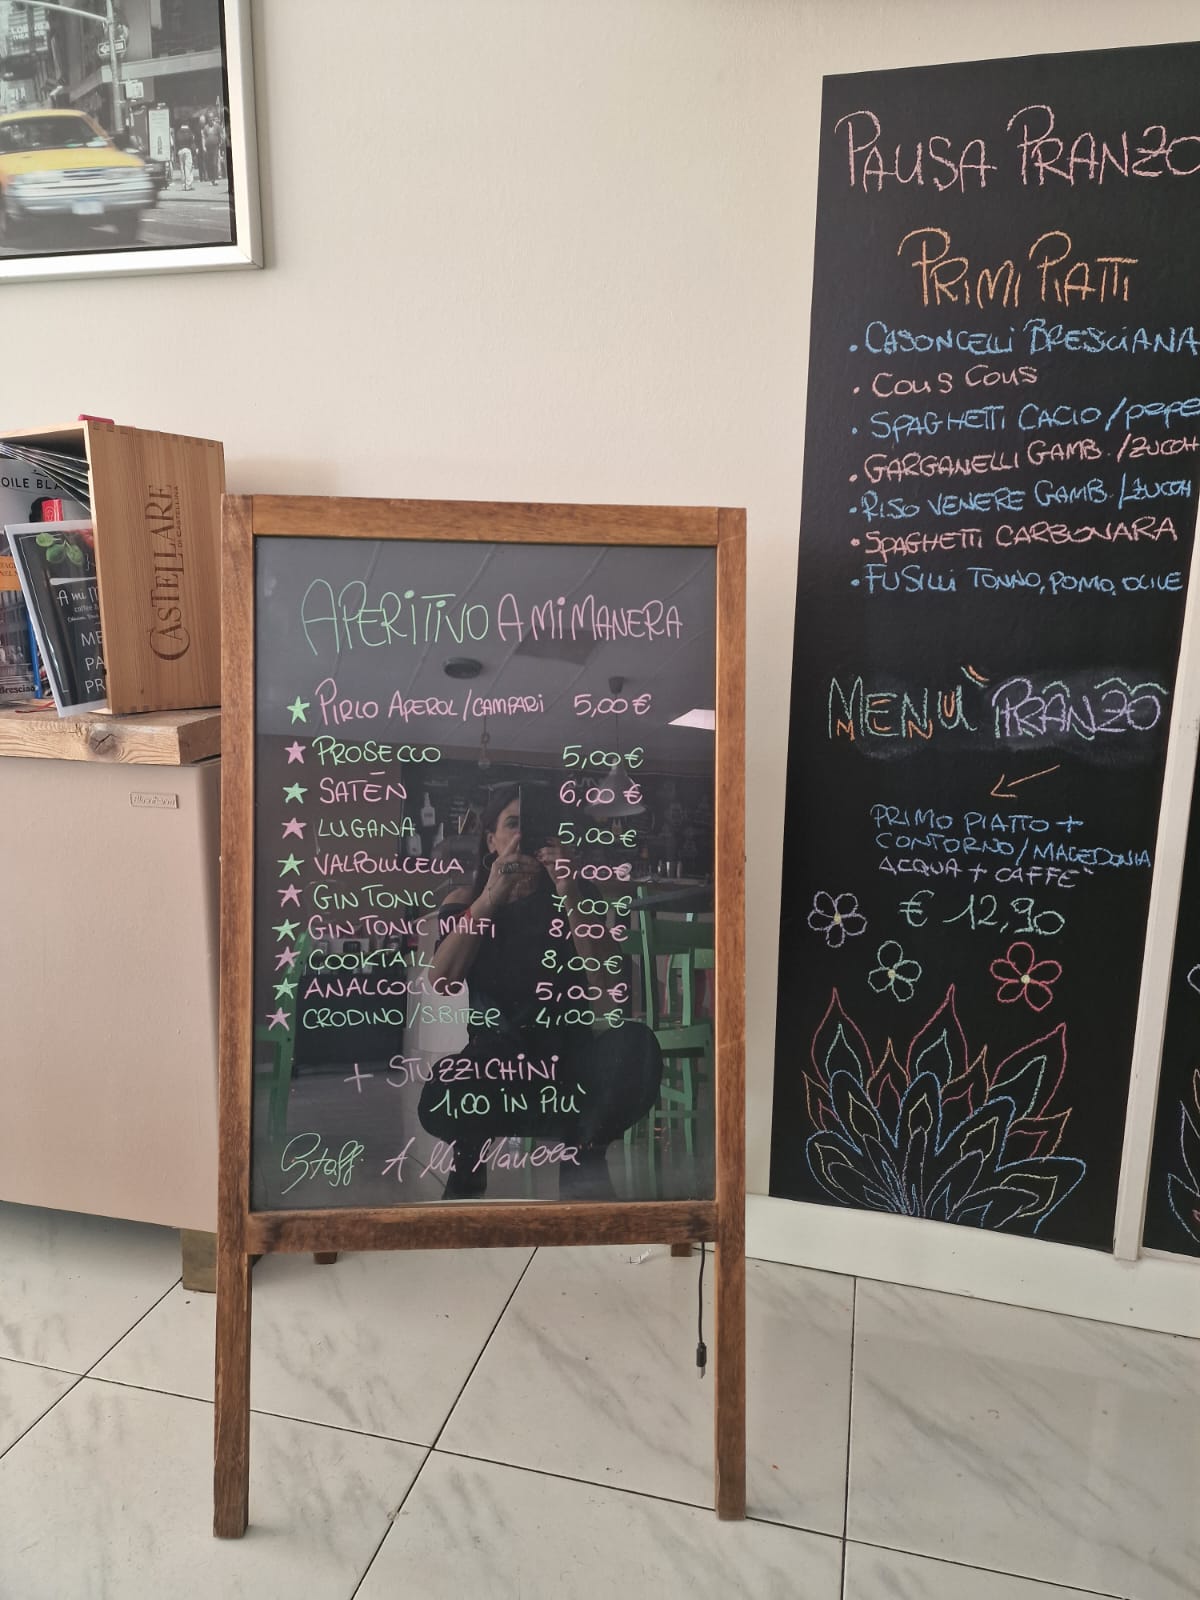 APERITIVO A MI MANERA
PIRLO APEROL/CAMPARI 5,00€
PROSECCO 5,00€
SATĒN 6,00€
LUGANA 5,00€
VALPOLLICELLA 5,00€
GIN TONIC 7,00€
GIN TONIC MALFI 8,00€
COOKTAIL 8,00€
ANALCOLICO 5,00€
CRODINO/S.BITER 4,00€
+ STUZZICHINI
1,00 IN PIÙ
Staff. A Mi Manera
PAUSA PRANZO
PRIMI PIATTI
• CASONCELLI BRESCIANA
• COUS COUS
• SPAGHETTI CACIO/PEPE
• GARGANELLI GAMB./ZUCCH
• RISO VENERE GAMB./ZUCCH
• SPAGHETTI CARBONARA
• FUSILLI TONNO, POMO, OLIVE
MENÙ PRANZO
PRIMO PIATTO +
CONTORNO/MACEDONIA
ACQUA + CAFFE'
€ 12,90
CASTELLARE
DI CASTELLINA
OILE BLA
A mi M
ME
PA
PR
Brescia